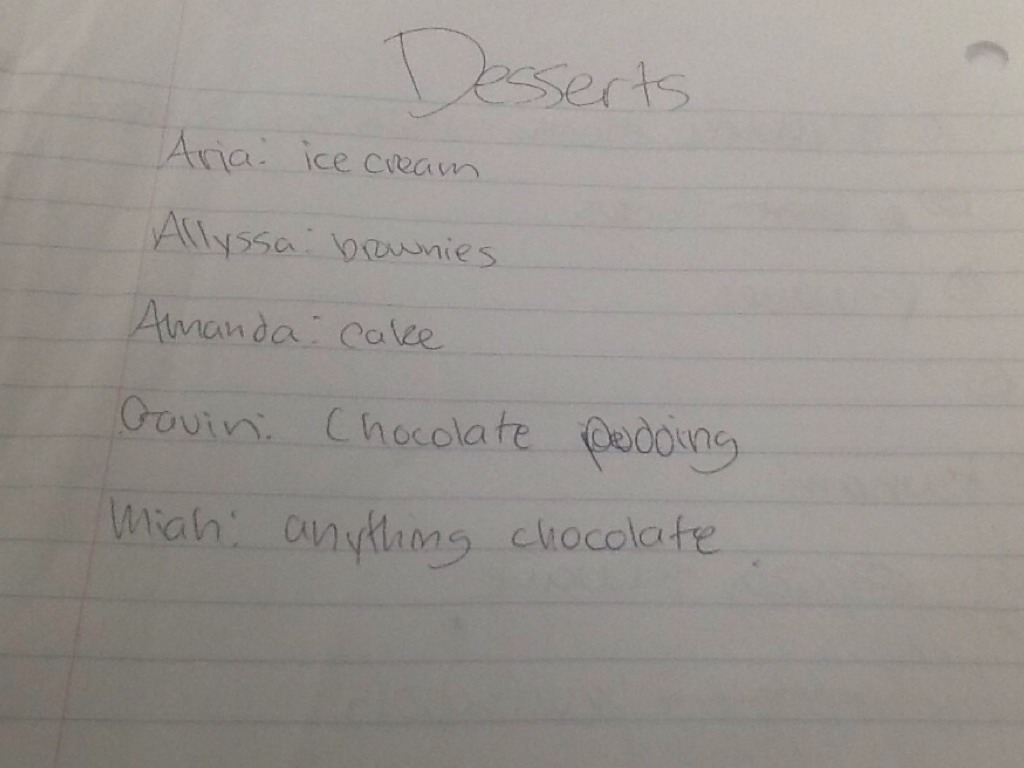 Desserts
Aria: ice cream
Allyssa: brownies
Amanda: cake
Gavin: Chocolate pudding
Miah: anything chocolate